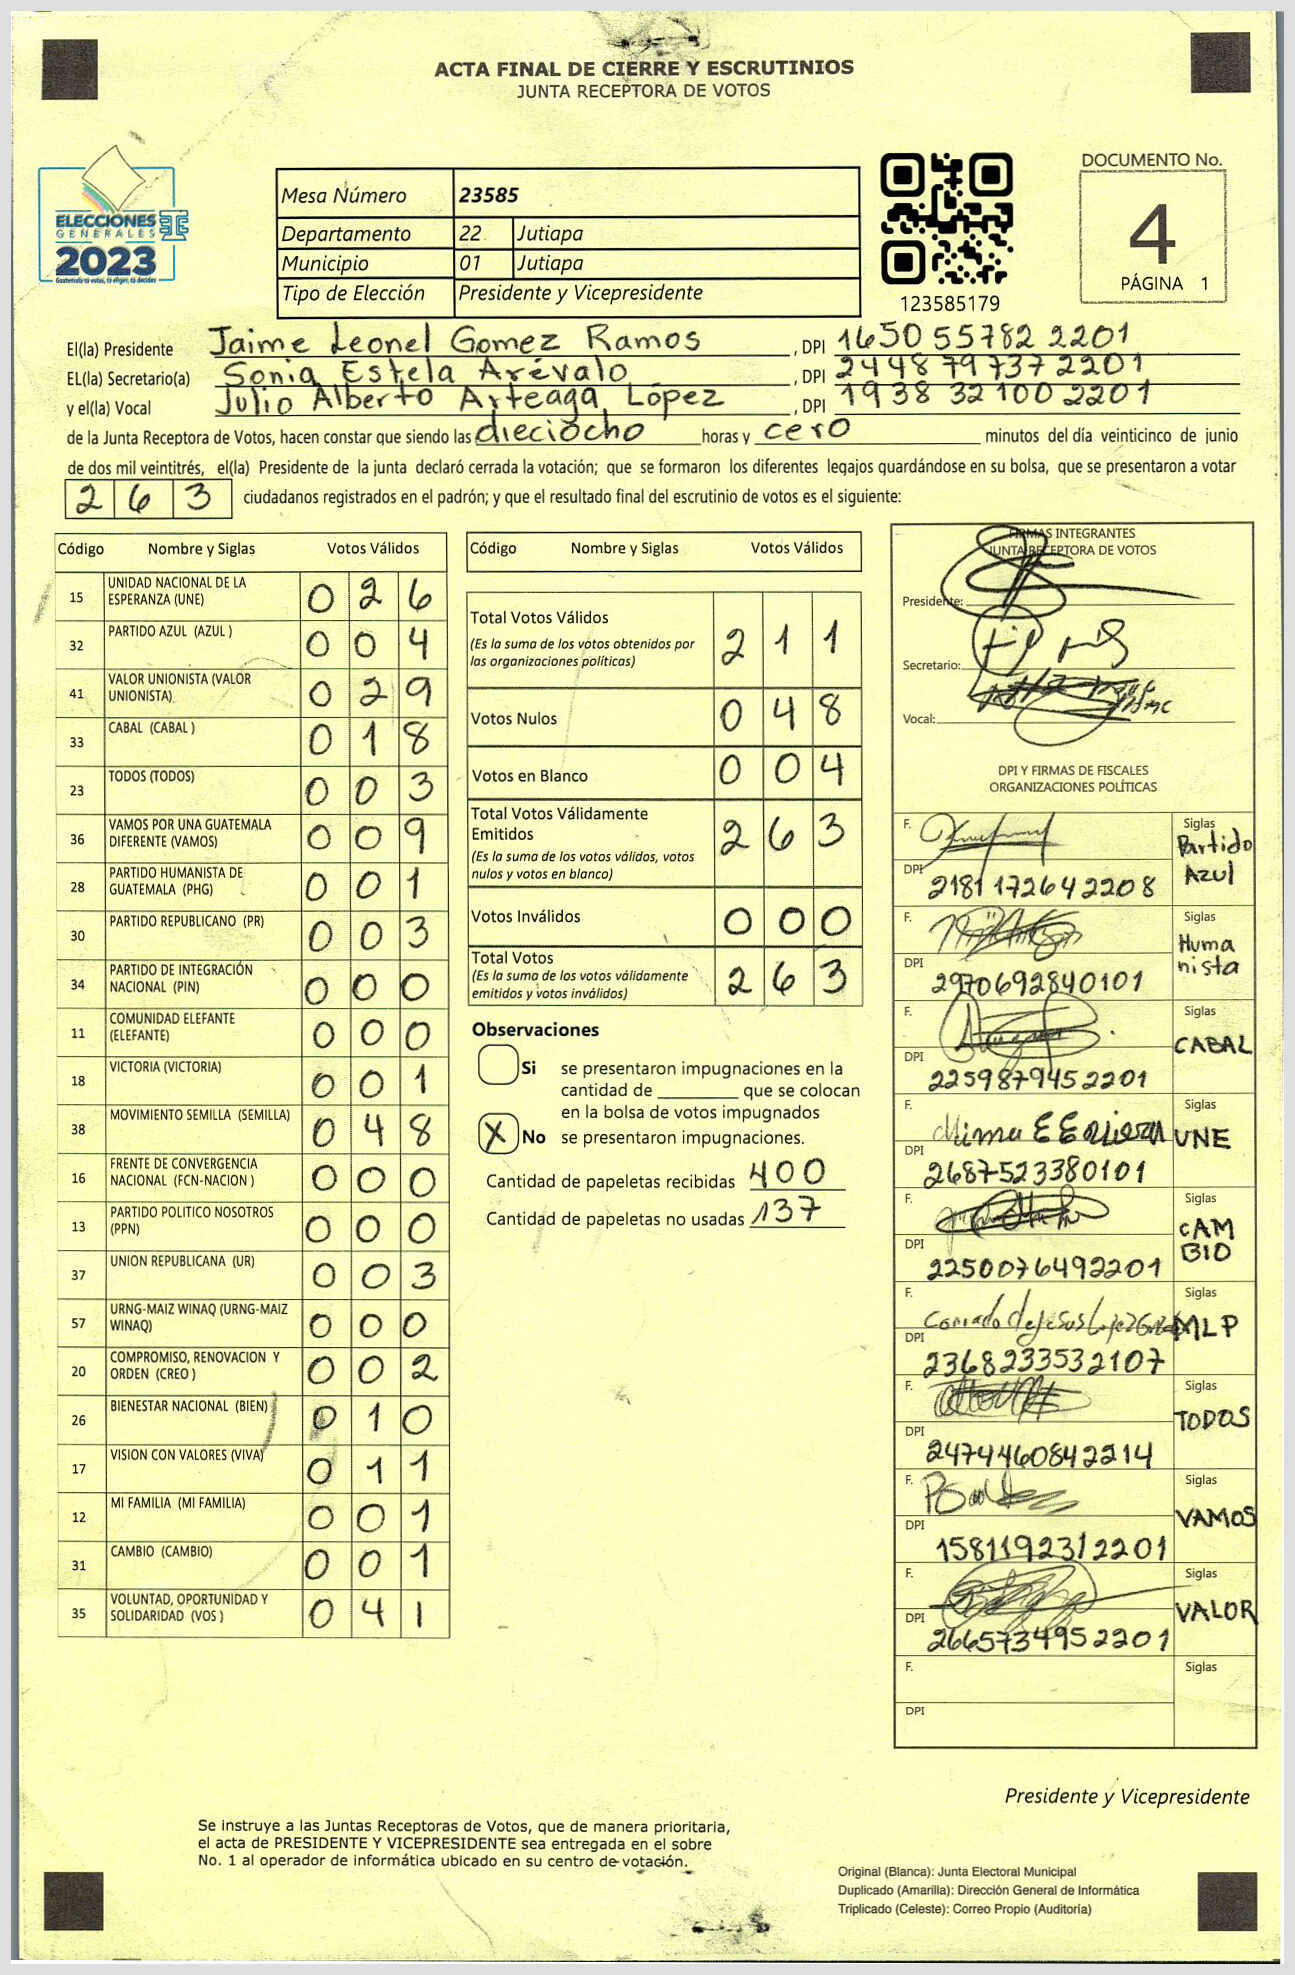 ACTA FINAL DE CIERRE Y ESCRUTINIOS
JUNTA RECEPTORA DE VOTOS
ELECCIONES
GENERALES
2023
Guatemala tú votas, tú eliges, tú decides
Mesa Número 23585
Departamento 22 Jutiapa
Municipio 01 Jutiapa
Tipo de Elección Presidente y Vicepresidente
123585179
DOCUMENTO No.
4
PÁGINA 1
El(la) Presidente Jaime Leonel Gomez Ramos , DPI 1650 55782 2201
EL(la) Secretario(a) Sonia Estela Arévalo , DPI 2448 79737 2201
y el(la) Vocal Julio Alberto Arteaga López , DPI 1938 32100 2201
de la Junta Receptora de Votos, hacen constar que siendo las dieciocho horas y cero minutos del día veinticinco de junio
de dos mil veintitrés, el(la) Presidente de la junta declaró cerrada la votación; que se formaron los diferentes legajos guardándose en su bolsa, que se presentaron a votar
263 ciudadanos registrados en el padrón; y que el resultado final del escrutinio de votos es el siguiente:
Código Nombre y Siglas Votos Válidos
15 UNIDAD NACIONAL DE LA ESPERANZA (UNE) 026
32 PARTIDO AZUL (AZUL ) 004
41 VALOR UNIONISTA (VALOR UNIONISTA) 029
33 CABAL (CABAL ) 018
23 TODOS (TODOS) 003
36 VAMOS POR UNA GUATEMALA DIFERENTE (VAMOS) 009
28 PARTIDO HUMANISTA DE GUATEMALA (PHG) 001
30 PARTIDO REPUBLICANO (PR) 003
34 PARTIDO DE INTEGRACIÓN NACIONAL (PIN) 000
11 COMUNIDAD ELEFANTE (ELEFANTE) 000
18 VICTORIA (VICTORIA) 001
38 MOVIMIENTO SEMILLA (SEMILLA) 048
16 FRENTE DE CONVERGENCIA NACIONAL (FCN-NACION ) 000
13 PARTIDO POLITICO NOSOTROS (PPN) 000
37 UNION REPUBLICANA (UR) 003
57 URNG-MAIZ WINAQ (URNG-MAIZ WINAQ) 000
20 COMPROMISO, RENOVACION Y ORDEN (CREO ) 002
26 BIENESTAR NACIONAL (BIEN) 010
17 VISION CON VALORES (VIVA) 011
12 MI FAMILIA (MI FAMILIA) 001
31 CAMBIO (CAMBIO) 001
35 VOLUNTAD, OPORTUNIDAD Y SOLIDARIDAD (VOS ) 041
Código Nombre y Siglas Votos Válidos
Total Votos Válidos 211
(Es la suma de los votos obtenidos por
las organizaciones políticas)
Votos Nulos 048
Votos en Blanco 004
Total Votos Válidamente
Emitidos 263
(Es la suma de los votos válidos, votos
nulos y votos en blanco)
Votos Inválidos 000
Total Votos 263
(Es la suma de los votos válidamente
emitidos y votos inválidos)
Observaciones
Si se presentaron impugnaciones en la
cantidad de ________ que se colocan
en la bolsa de votos impugnados
X No se presentaron impugnaciones.
Cantidad de papeletas recibidas 400
Cantidad de papeletas no usadas 137
FIRMAS INTEGRANTES
JUNTA RECEPTORA DE VOTOS
Presidente:
Secretario:
Vocal:
DPI Y FIRMAS DE FISCALES
ORGANIZACIONES POLÍTICAS
F. Siglas Partido Azul
DPI 2181 172642208
F. Siglas Humanista
DPI 2970692840101
F. Siglas CABAL
DPI 2259879452201
F. Siglas UNE
DPI 2687523380101
F. Siglas CAMBIO
DPI 2250076492201
F. Conrado de Jesus Lopez Siglas MLP
DPI 2368233532107
F. Siglas TODOS
DPI 2474460842214
F. Siglas VAMOS
DPI 1581192312201
F. Siglas VALOR
DPI 2665734952201
F. Siglas
DPI
Presidente y Vicepresidente
Se instruye a las Juntas Receptoras de Votos, que de manera prioritaria,
el acta de PRESIDENTE Y VICEPRESIDENTE sea entregada en el sobre
No. 1 al operador de informática ubicado en su centro de votación.
Original (Blanca): Junta Electoral Municipal
Duplicado (Amarilla): Dirección General de Informática
Triplicado (Celeste): Correo Propio (Auditoría)